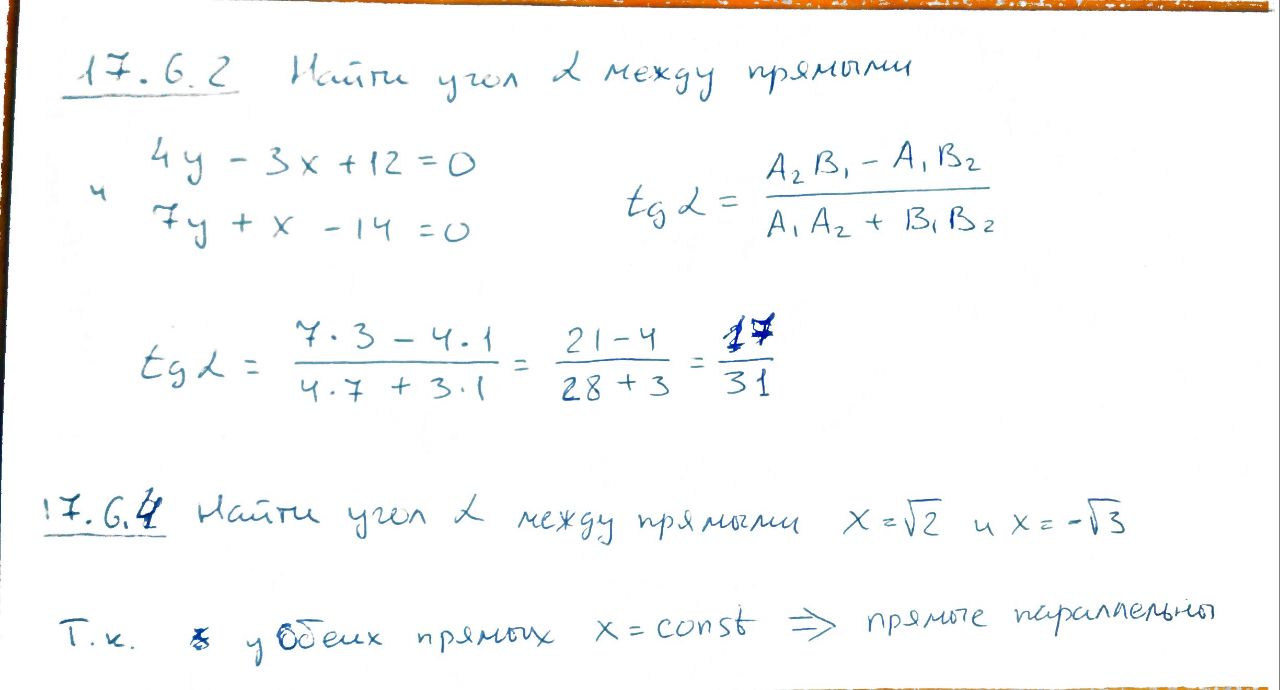 17.6.2 Найти угол α между прямыми
4y - 3x + 12 = 0
и
7y + x - 14 = 0
tg α = (A₂B₁ - A₁B₂) / (A₁A₂ + B₁B₂)
tg α = (7·3 - 4·1) / (4·7 + 3·1) = (21-4) / (28+3) = 17/31
17.6.4 Найти угол α между прямыми x = √2 и x = -√3
Т.к. у обеих прямых x = const ⇒ прямые параллельны